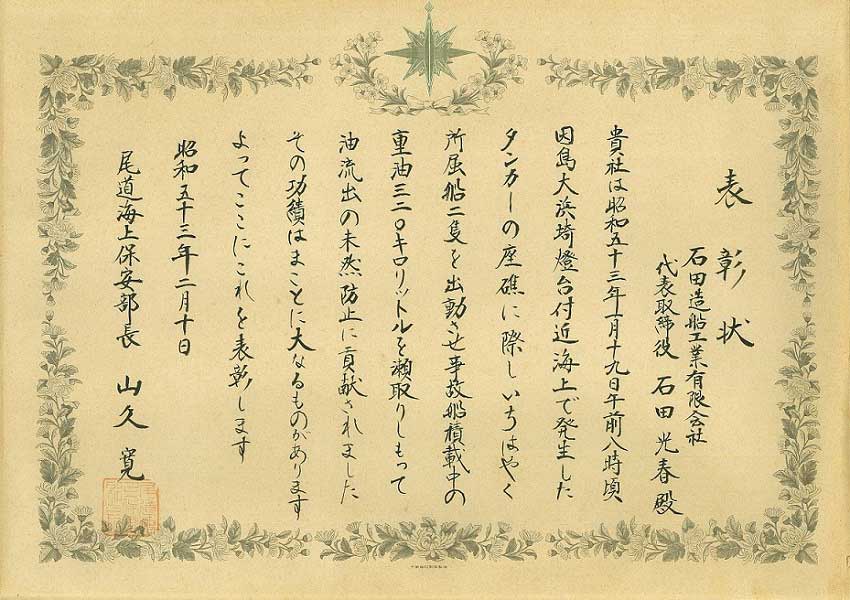 表彰状
石田造船工業有限会社
代表取締役 石田光春殿
貴社は昭和五十三年一月十九日午前八時頃
因島大浜埼燈台付近海上で発生した
タンカーの座礁に際しいちはやく
所属船二隻を出動させ事故船積載中の
重油三二〇キロリットルを瀬取りしもって
油流出の未然防止に貢献されました
その功績はまことに大なるものがあります
よってここにこれを表彰します
昭和五十三年二月十日
尾道海上保安部長 山久 寛